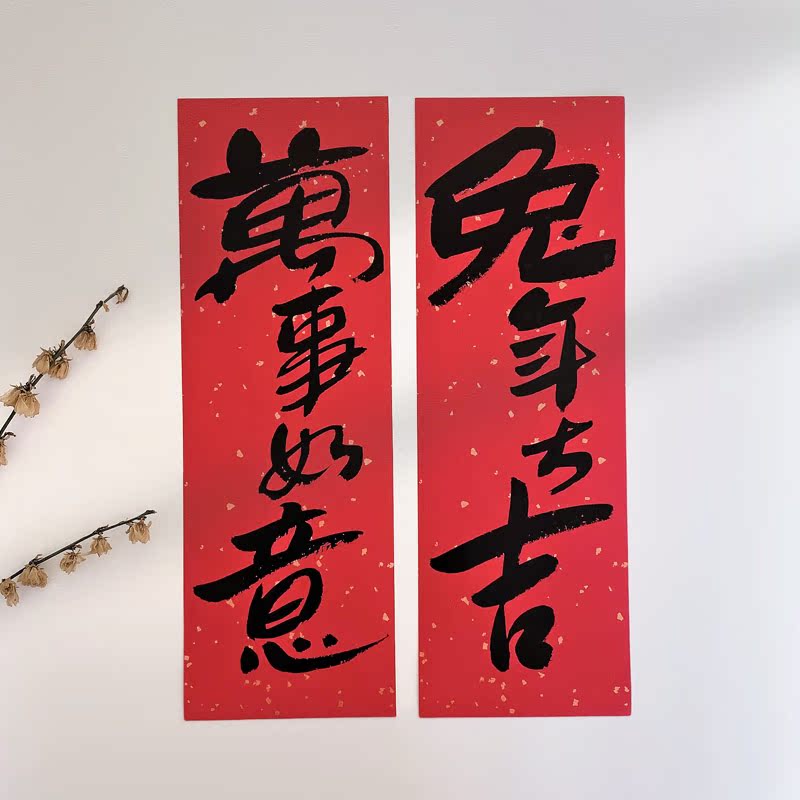 兔年大吉
萬事如意